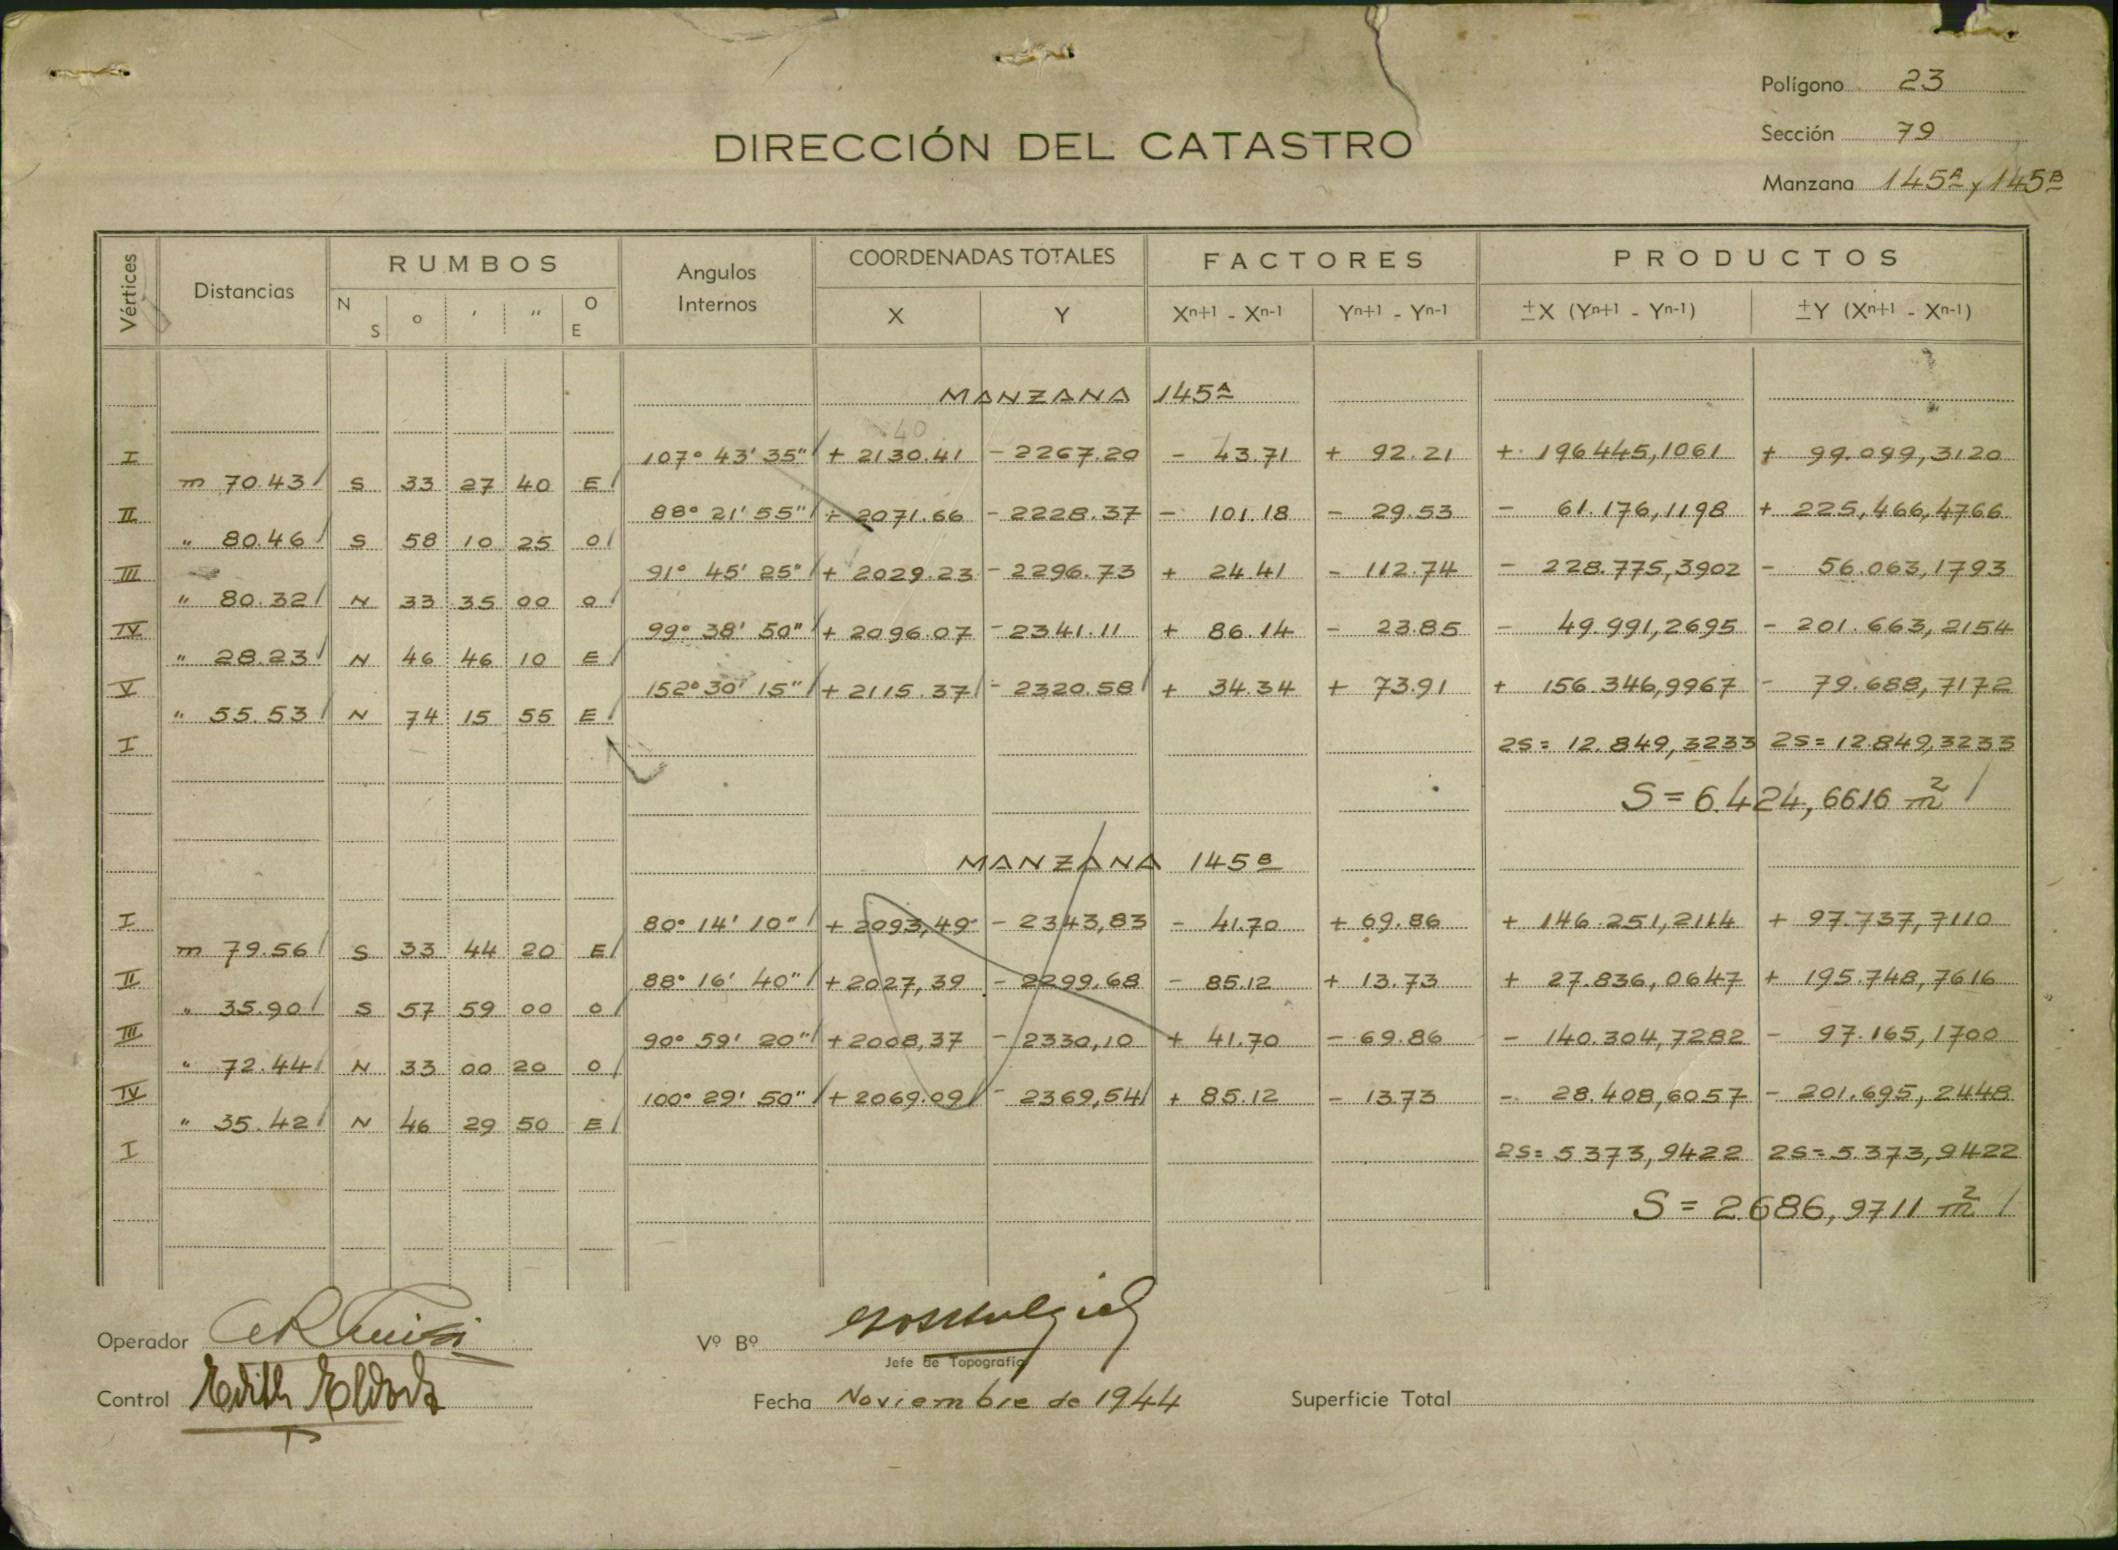 Polígono 23
Sección 79
DIRECCIÓN DEL CATASTRO
Manzana 145A y 145B
Vértices Distancias RUMBOS Angulos Internos COORDENADAS TOTALES FACTORES PRODUCTOS
N S o ' " O E X Y Xn+1 - Xn-1 Yn+1 - Yn-1 ±X (Yn+1 - Yn-1) ±Y (Xn+1 - Xn-1)
MANZANA 145A
40
I 107° 43' 35" + 2130.41 - 2267.20 - 43.71 + 92.21 + 196445,1061 + 99.099,3120
m 70.43 S 33 27 40 E
II 88° 21' 55" + 2071.66 - 2228.37 - 101.18 - 29.53 - 61.176,1198 + 225,466,4766
" 80.46 S 58 10 25 O
III 91° 45' 25" + 2029.23 - 2296.73 + 24.41 - 112.74 - 228.775,3902 - 56.063,1793
" 80.32 N 33 35 00 O
IV 99° 38' 50" + 2096.07 - 2341.11 + 86.14 - 23.85 - 49.991,2695 - 201.663,2154
" 28.23 N 46 46 10 E
V 152° 30' 15" + 2115.37 - 2320.58 + 34.34 + 73.91 + 156.346,9967 - 79.688,7172
" 55.53 N 74 15 55 E
I 2S= 12.849,3233 2S= 12.849,3233
S = 6.424,6616 m2
MANZANA 145B
I 80° 14' 10" + 2093,49 - 2343,83 - 41.70 + 69.86 + 146.251,2114 + 97.737,7110
m 79.56 S 33 44 20 E
II 88° 16' 40" + 2027,39 - 2299.68 - 85.12 + 13.73 + 27.836,0647 + 195.748,7616
" 35.90 S 57 59 00 O
III 90° 59' 20" + 2008,37 - 2330,10 + 41.70 - 69.86 - 140.304,7282 - 97.165,1700
" 72.44 N 33 00 20 O
IV 100° 29' 50" + 2069.09 - 2369,54 + 85.12 - 13.73 - 28.408,6057 - 201.695,2448
" 35.42 N 46 29 50 E
I 2S= 5.373,9422 2S= 5.373,9422
S = 2.686,9711 m2
Operador Vº Bº
Jefe de Topografía
Control Edith Fecha Noviembre de 1944 Superficie Total